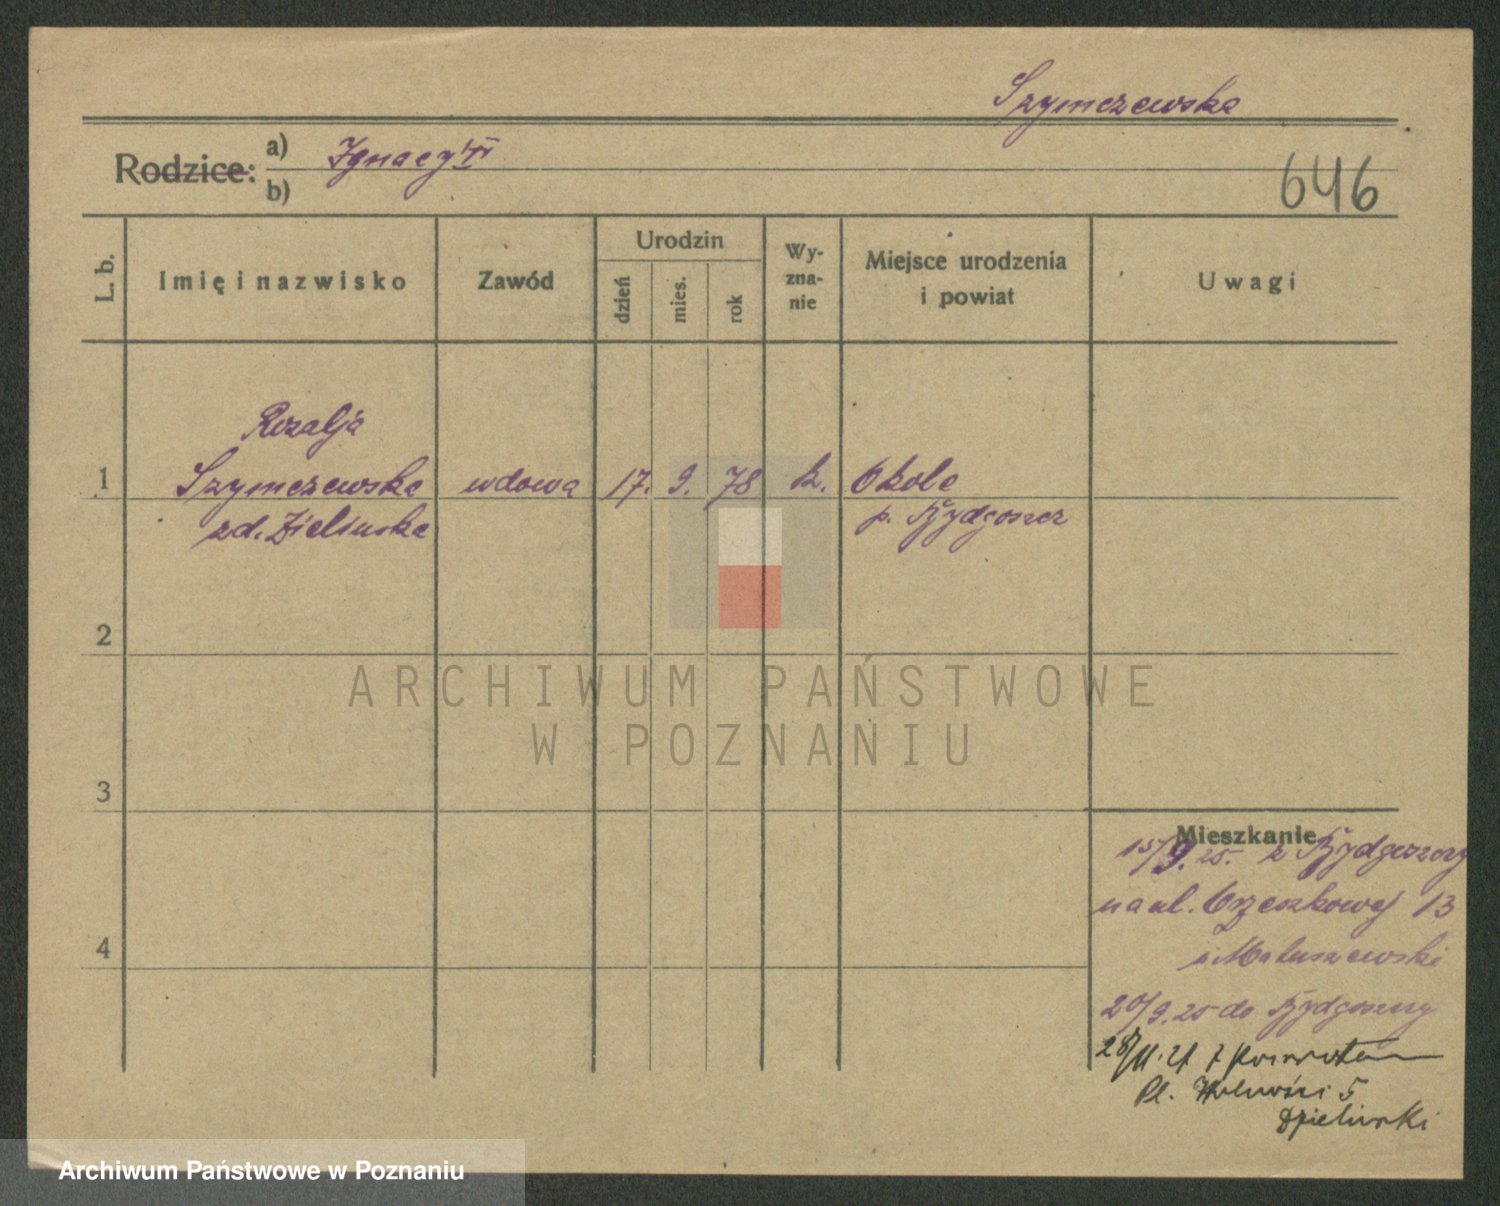 Szymczewska
Rodzice: a) Ignacy
b)
646
L. b. Imię i nazwisko Zawód Urodzin dzień mies. rok Wy-zna-nie Miejsce urodzenia i powiat Uwagi
Rozalja
1 Szymczewska wdowa 17. 9. 78 k. Okole
zd. Zielinska p. Bydgoszcz
2
ARCHIWUM PAŃSTWOWE
W POZNANIU
3
Mieszkanie
15/9.25. z Bydgoszczy
na ul. Orzeszkowej 13
Matuszewski
4
20/9.25 do Bydgoszczy
28/11. z powrotem
Pl. Wolności 5
Archiwum Państwowe w Poznaniu